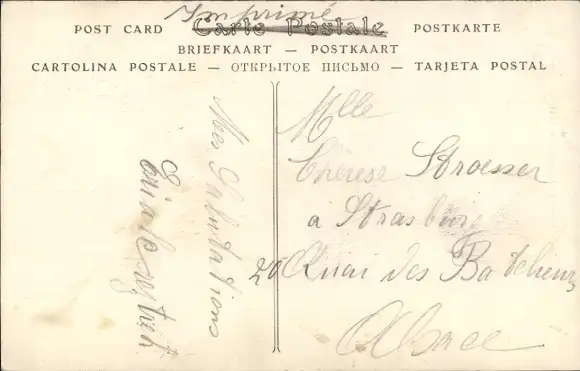 Imprimé
POST CARD Carte Postale POSTKARTE
BRIEFKAART — POSTKAART
CARTOLINA POSTALE — ОТКРЫТОЕ ПИСЬМО — TARJETA POSTAL
Mes Salutations
Mlle
Thérèse Stroesser
a Strasburg
20 Quai des Bateliers
Alsace